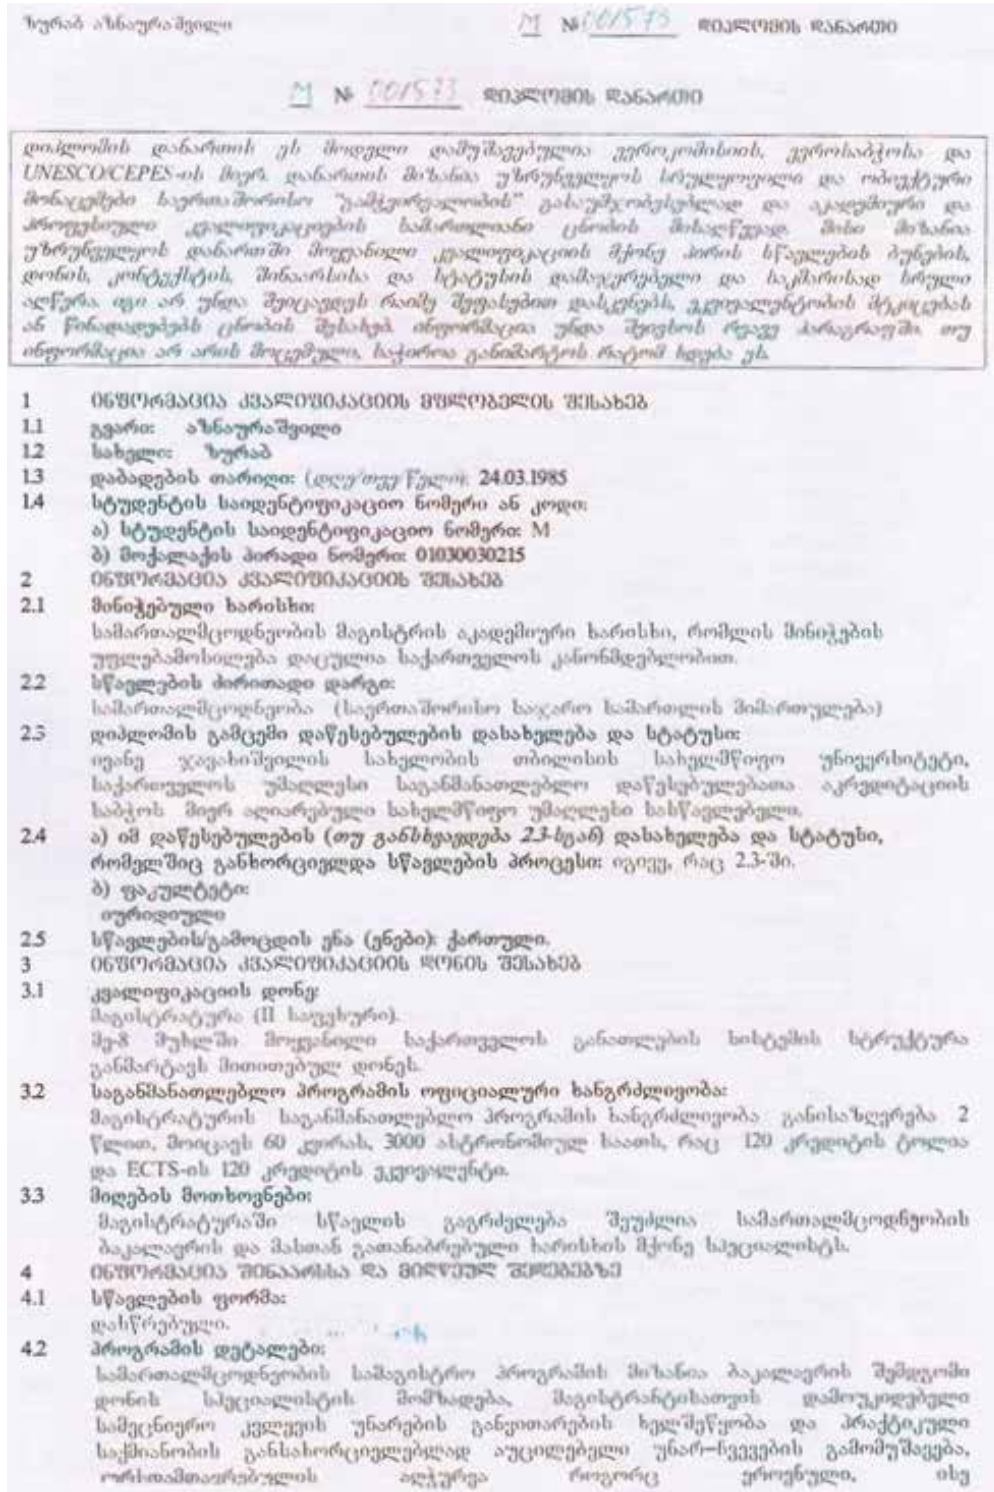 ზურაბ აზნაურაშვილი M № 001573 დიპლომის დანართი
M № 001573 დიპლომის დანართი
დიპლომის დანართის ეს მოდელი დამუშავებულია ევროკომისიის, ევროსაბჭოსა და
UNESCO/CEPES-ის მიერ. დანართის მიზანია უზრუნველყოს სრულყოფილი და ობიექტური
მონაცემები საერთაშორისო "გამჭვირვალობის" გასაუმჯობესებლად და აკადემიური და
პროფესიული კვალიფიკაციების სამართლიანი ცნობის მისაღწევად. მისი მიზანია
უზრუნველყოს დანართში მოყვანილი კვალიფიკაციის მქონე პირის სწავლების ბუნების,
დონის, კონტექსტის, შინაარსისა და სტატუსის დამაჯერებელი და საკმარისად სრული
აღწერა. იგი არ უნდა შეიცავდეს რაიმე შეფასებით დასკვნებს, ეკვივალენტობის მტკიცებას
ან წინადადებებს ცნობის შესახებ. ინფორმაცია უნდა შეივსოს რვავე პარაგრაფში. თუ
ინფორმაცია არ არის მოცემული, საჭიროა განიმარტოს რატომ ხდება ეს.
1 ინფორმაცია კვალიფიკაციის მფლობელის შესახებ
1.1 გვარი: აზნაურაშვილი
1.2 სახელი: ზურაბ
1.3 დაბადების თარიღი: (დღე/თვე/წელი): 24.03.1985
1.4 სტუდენტის საიდენტიფიკაციო ნომერი ან კოდი:
ა) სტუდენტის საიდენტიფიკაციო ნომერი: M
ბ) მოქალაქის პირადი ნომერი: 01030030215
2 ინფორმაცია კვალიფიკაციის შესახებ
2.1 მინიჭებული ხარისხი:
სამართალმცოდნეობის მაგისტრის აკადემიური ხარისხი, რომლის მინიჭების
უფლებამოსილება დაცულია საქართველოს კანონმდებლობით.
2.2 სწავლების ძირითადი დარგი:
სამართალმცოდნეობა (საერთაშორისო საჯარო სამართლის მიმართულება)
2.3 დიპლომის გამცემი დაწესებულების დასახელება და სტატუსი:
ივანე ჯავახიშვილის სახელობის თბილისის სახელმწიფო უნივერსიტეტი,
საქართველოს უმაღლესი საგანმანათლებლო დაწესებულებათა აკრედიტაციის
საბჭოს მიერ აღიარებული სახელმწიფო უმაღლესი სასწავლებელი.
2.4 ა) იმ დაწესებულების (თუ განსხვავდება 2.3-სგან) დასახელება და სტატუსი,
რომელშიც განხორციელდა სწავლების პროცესი: იგივე, რაც 2.3-ში.
ბ) ფაკულტეტი:
იურიდიული
2.5 სწავლების/გამოცდის ენა (ენები): ქართული.
3 ინფორმაცია კვალიფიკაციის დონის შესახებ
3.1 კვალიფიკაციის დონე:
მაგისტრატურა (II საფეხური).
მე-8 მუხლში მოყვანილი საქართველოს განათლების სისტემის სტრუქტურა
განმარტავს მითითებულ დონეს.
3.2 საგანმანათლებლო პროგრამის ოფიციალური ხანგრძლივობა:
მაგისტრატურის საგანმანათლებლო პროგრამის ხანგრძლივობა განისაზღვრება 2
წლით, მოიცავს 60 კვირას, 3000 ასტრონომიულ საათს, რაც 120 კრედიტის ტოლია
და ECTS-ის 120 კრედიტის ეკვივალენტი.
3.3 მიღების მოთხოვნები:
მაგისტრატურაში სწავლის გაგრძელება შეუძლია სამართალმცოდნეობის
ბაკალავრის და მასთან გათანაბრებული ხარისხის მქონე სპეციალისტს.
4 ინფორმაცია შინაარსსა და მიღწეულ შედეგებზე
4.1 სწავლების ფორმა:
დასწრებული.
4.2 პროგრამის დეტალები:
სამართალმცოდნეობის სამაგისტრო პროგრამის მიზანია ბაკალავრის შემდგომი
დონის სპეციალისტის მომზადება, მაგისტრანტისათვის დამოუკიდებელი
სამეცნიერო კვლევის უნარების განვითარების ხელშეწყობა და პრაქტიკული
საქმიანობის განსახორციელებლად აუცილებელი უნარ-ჩვევების გამომუშავება,
კურსდამთავრებულის აღჭურვა როგორც ეროვნული, ისე